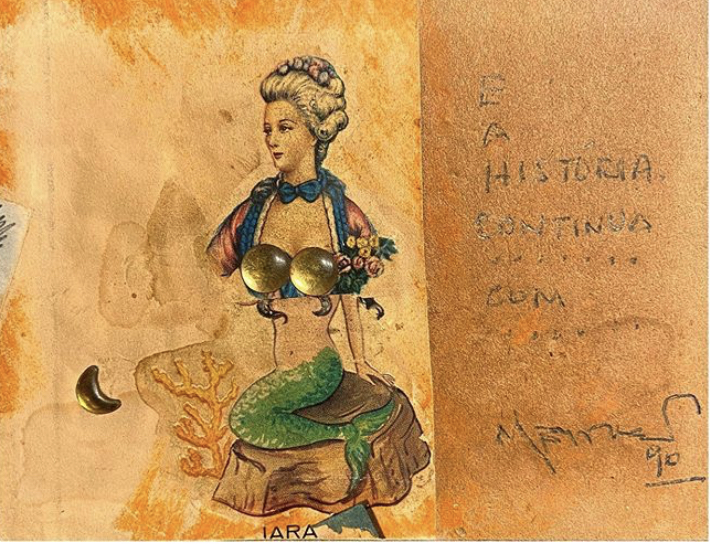 E
A
HISTÓRIA
CONTINUA
........
COM
IARA
90